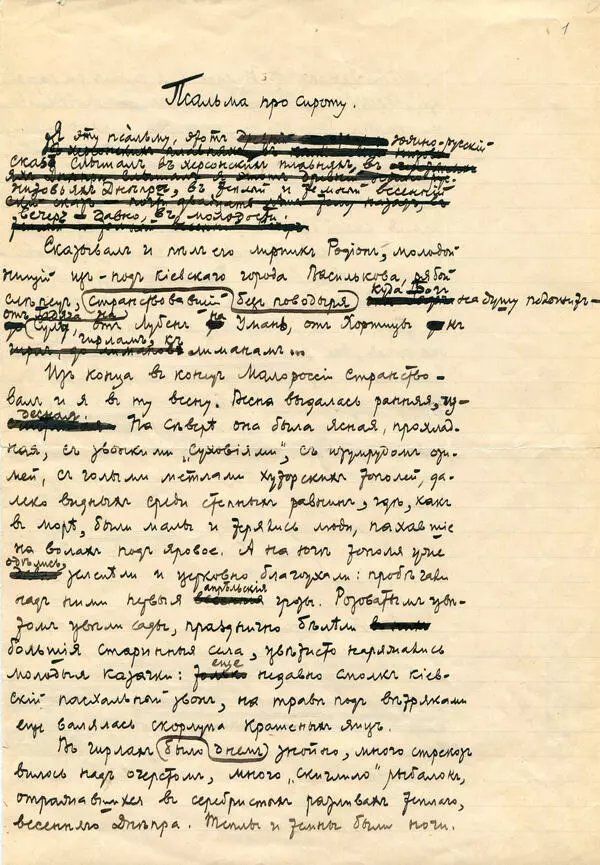 1
Псальма про сироту.
Я эту псальму, этотъ южно-русскій
сказъ слышалъ въ херсонскихъ плавняхъ, въ
низовьяхъ Днѣпра, въ теплый и темный весенній
вечеръ – давно, въ молодости.
Сказывалъ и пѣлъ его лирникъ Родіонъ, молодой
нищій изъ-подъ кіевскаго города Василькова, рябой
куда Богъ
слѣпецъ, странствовавшій безъ поводыря на душу положитъ –
отъ на
Сулу, отъ Лубенъ на Умань, отъ Хортицы къ
гирламъ, къ
лиманамъ...
Изъ конца въ конецъ Малороссіи странство-
валъ и я въ ту весну. Весна выдалась ранняя, чу-
десная.
На сѣверѣ она была ясная, прохлад-
ная, съ звонкими „суховіями“, съ изумрудомъ ози-
мей, съ голыми метлами хуторскихъ тополей, да-
леко видныхъ среди степныхъ равнинъ, гдѣ, какъ
въ морѣ, были малы и терялись люди, пахавшіе
на волахъ подъ яровое. А на югѣ тополя уже
одѣлись,
зеленѣли и церковно благоухали: пробѣгали
апрѣльскія
надъ ними первыя грозы. Розоватымъ цвѣ-
томъ цвѣли сады, празднично бѣлѣли
большія старинныя села, цвѣтисто наряжались
еще
молодыя казачки: недавно смолкъ кіев-
скій пасхальный звонъ, на травѣ подъ вѣтряками
еще валялась скорлупа крашеныхъ яицъ.
Въ гирлахъ было днемъ знойно, много стрекозъ
вилось надъ очеретомъ, много „скиглило“ рыбалокъ,
отражавшихся въ серебристыхъ разливахъ теплаго,
весенняго Днѣпра. Теплы и темны были ночи.